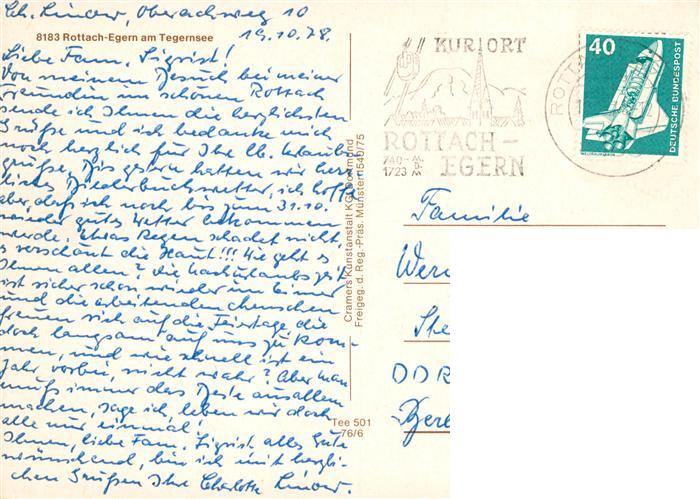 Ch. Linow, Oberachweg 10
8183 Rottach-Egern am Tegernsee
19.10.78.
Liebe Fam. Sigrist!
Von meinem Besuch bei meiner
Freundin im schönen Rottach
sende ich Ihnen die herzlichsten
Grüße und ich bedanke mich
noch herzlich für Ihre lb. Urlaub
grüße. Bis gestern hatten wir herr
liches Bilderbuchwetter, ich hoffe
aber, daß ich noch bis zum 31.10.
wieder gutes Wetter bekommen
werde, etwas Regen schadet nicht,
es verschönt die Haut!!! Wie geht es
Ihnen allen? Die Nachurlaubszeit
ist sicher schon wieder im Eimer
und die arbeitenden Menschen
freuen sich auf die Feiertage, die
doch langsam auf uns zu kom-
men, und wie schnell ist ein
Jahr vorbei, nicht wahr? Aber man
muß immer das Beste aus allem
machen, sage ich, leben wir doch
alle nur einmal!
Ihnen, liebe Fam. Sigrist alles Gute
wünschend, bin ich mit herzli-
chen Grüßen Ihre Charlotte Linow.
Cramers Kunstanstalt KG, Dortmund
Freigeg. d. Reg.-Präs. Münster 1540/75
Tee 501
76/6
KURORT
ROTTACH-
EGERN
740-
1723
ROTTA
40
DEUTSCHE BUNDESPOST
Familie
Wer
Ste
DDR